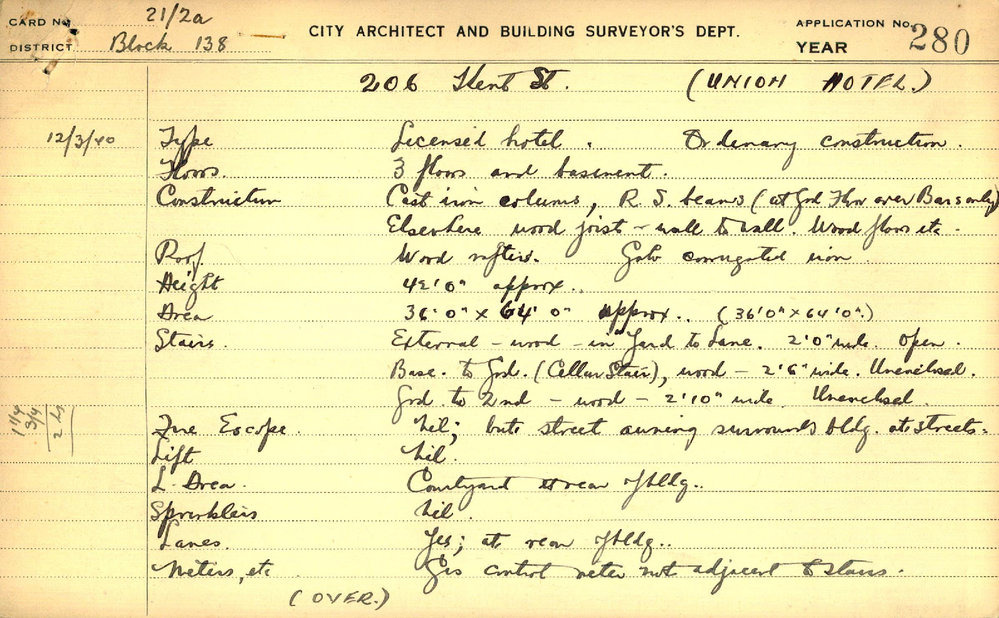 CARD No. 21/2a
DISTRICT. Block 138
CITY ARCHITECT AND BUILDING SURVEYOR'S DEPT.
APPLICATION No. 280
YEAR
206 Kent St. (UNION HOTEL.)
12/3/40
Type Licensed hotel. Ordinary construction.
Floors. 3 floors and basement.
Construction Cast iron columns, R. S. beams (at Grd Floor over Bars only)
Elsewhere wood joist - wall to wall. Wood floors etc.
Roof. Wood rafters. Galv corrugated iron
Height 42'0" approx..
Area 36'0" x 64'0" approx.. (36'0" x 64'0".)
Stairs. External - wood - in Yard to Lane. 2'0" wide. Open.
Base. to Grd. (Cellar Stair), wood - 2'6" wide. Unenclosed.
Grd. to 2nd - wood - 2'10" wide. Unenclosed.
1 1/4
3/4
2
Fire Escape. Nil; but street awning surrounds bldg. at streets.
Lift Nil.
L. Area. Courtyard at rear of bldg..
Sprinklers Nil.
Lanes. Yes; at rear of bldg..
Meters, etc Gas control meter not adjacent to stairs.
(OVER.)